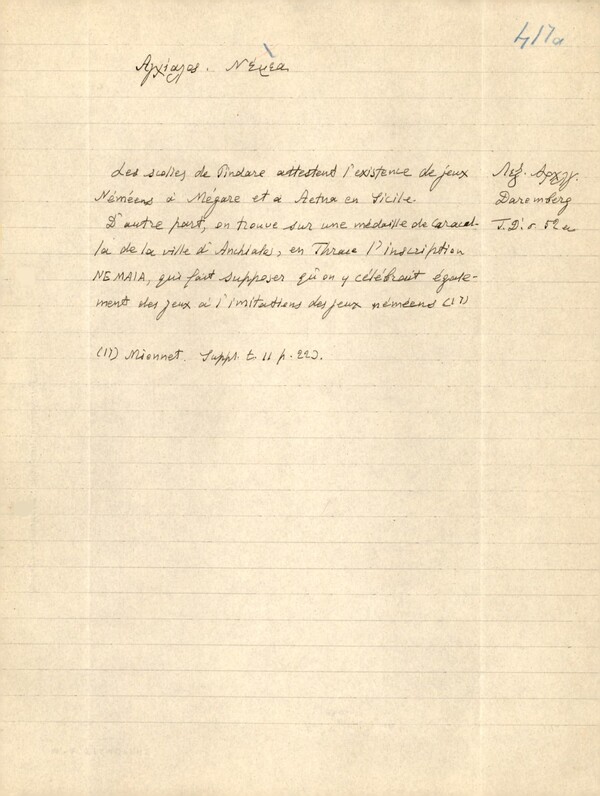 417a
Αγχίαλος. Νέμεα
Les scolies de Pindare attestent l'existence de jeux
Néméens à Mégare et à Aetna en Sicile.
D'autre part, on trouve sur une médaille de Caracal-
la de la ville d'Anchiale, en Thrace l'inscription
NEMAIA, qui fait supposer qu'on y célébrait égale-
ment des jeux à l'imitations des jeux néméens (17)
(17) Mionnet. Suppl. t. II p. 220.
Λεξ. Αρχλγ.
Daremberg
Τ. Δ' σ. 52a